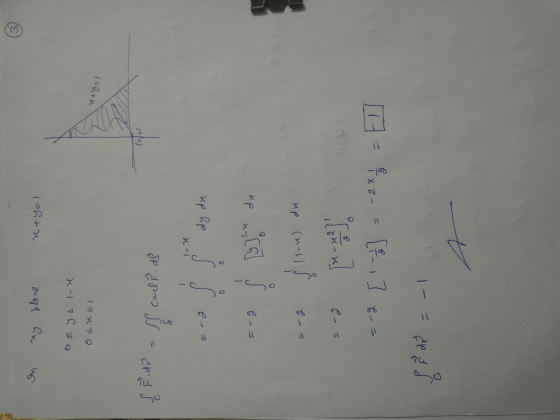 ③
In xy plane x+y=1
0 ≤ y ≤ 1-x
0 ≤ x ≤ 1
x+y=1
∫_C F⃗·dr⃗ = ∬_S curl F⃗·dS⃗
= -2 ∫_0^1 ∫_0^{1-x} dy dx
= -2 ∫_0^1 [y]_0^{1-x} dx
= -2 ∫_0^1 (1-x) dx
= -2 [x - x²/2]_0^1
= -2 [1 - 1/2] = -2 × 1/2 = -1
∫_C F⃗·dr⃗ = -1